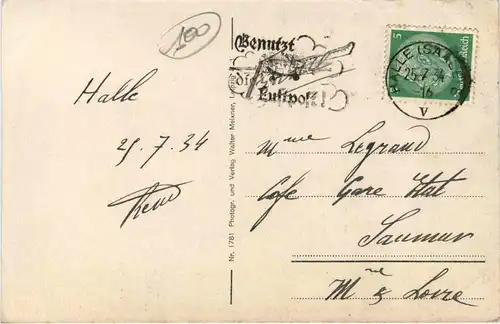 100
Benutzt
die
Luftpost!
5
HALLE (SAALE)
25.7.34
16
V
Halle
25.7.34
Nr. 1781 Photogr. und Verlag Walter Meixner, Leipzig
Mme Legrand
Café Gare Etat
Saumur
Mne & Loire